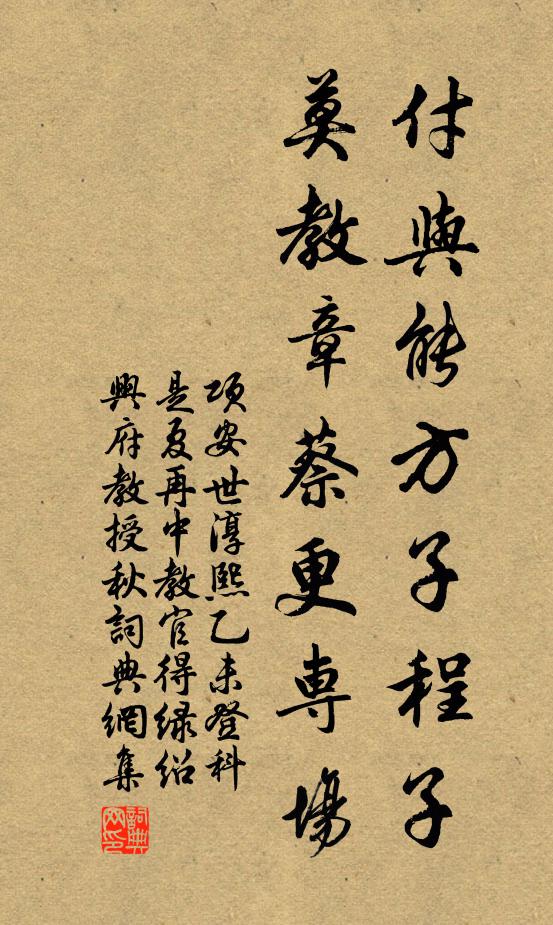 付與能方子程子
莫教章蔡更専場
項安世淳熙乙未登科
是夏再中教官得緑紹
興府教授秋詞典網集
詞典网印